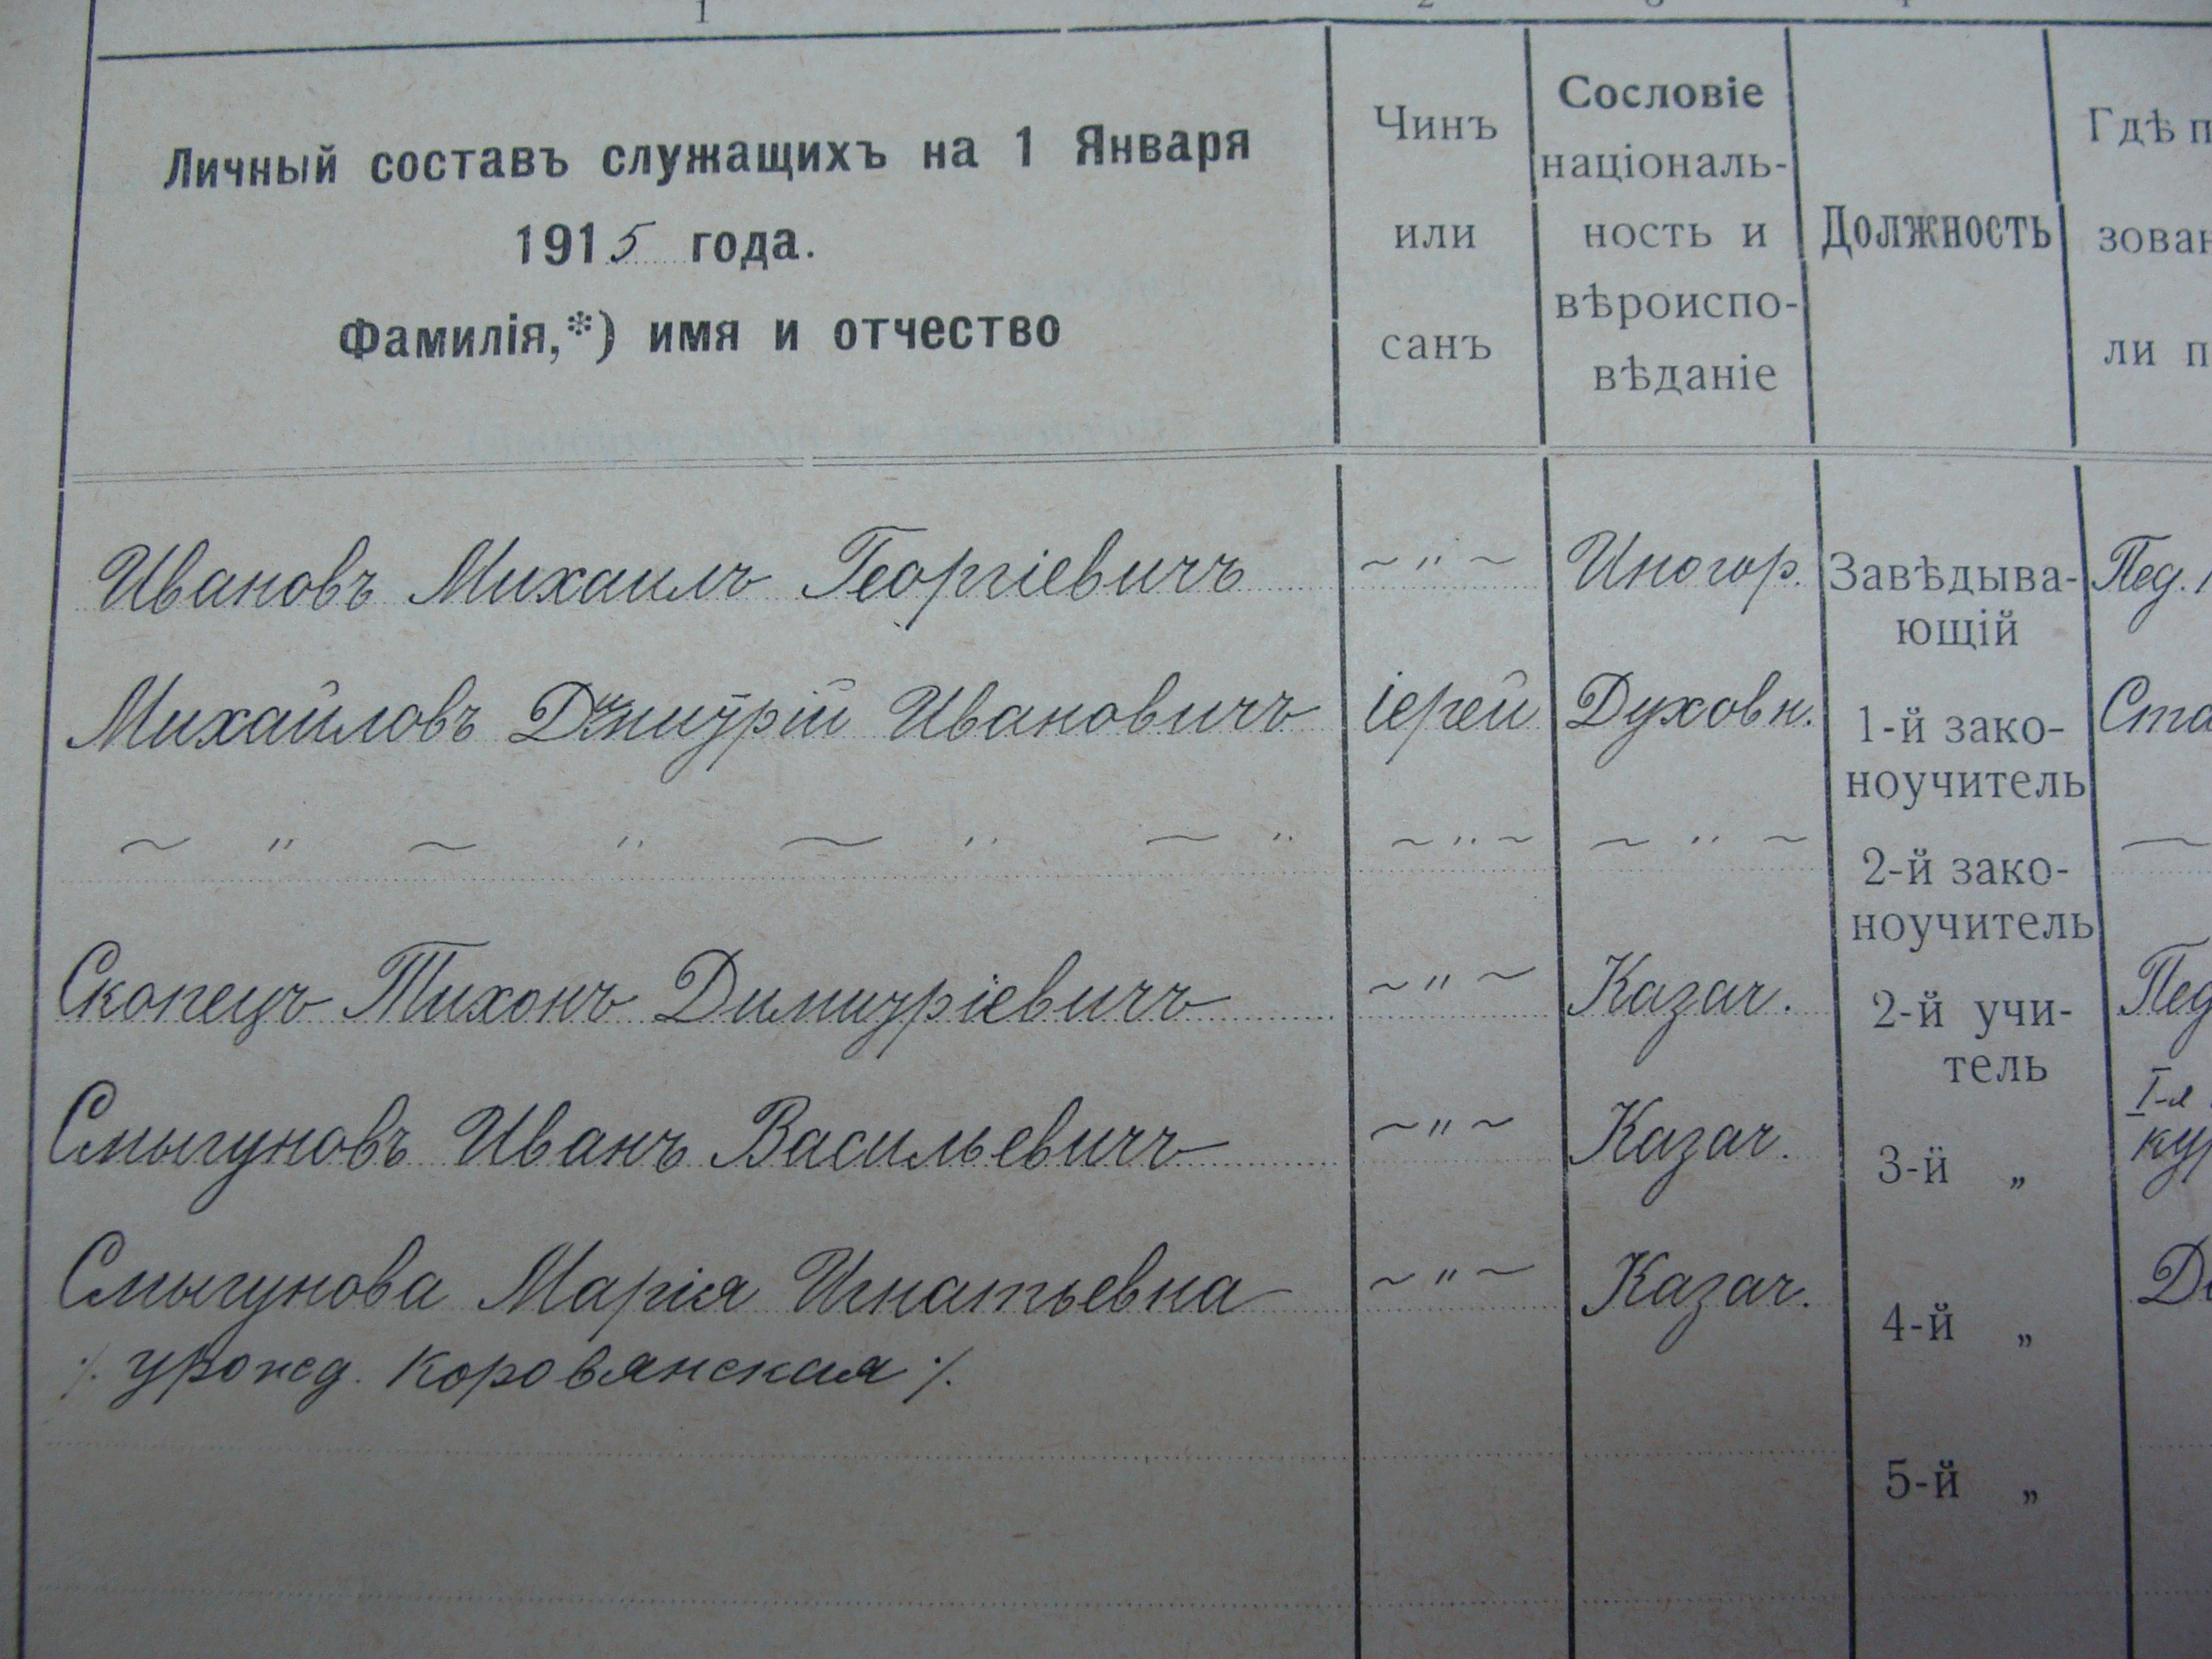 1
Личный составъ служащихъ на 1 Января
1915 года.
Фамилія,*) имя и отчество
Чинъ
или
санъ
Сословіе
національ-
ность и
вѣроиспо-
вѣданіе
Должность
Гдѣ п
зован
ли п
Ивановъ Михаилъ Георгіевичъ ~ " ~ Иногор. Завѣдыва-
ющій
Пед.
Михайловъ Дмитрій Ивановичъ іерей Духовн. 1-й зако-
ноучитель
Ста
~ " ~ " ~ " ~ " ~ " ~ ~ " ~ 2-й зако-
ноучитель
Скопецъ Тихонъ Димитріевичъ ~ " ~ Казач. 2-й учи-
тель
Пед
Смыгуновъ Иванъ Васильевичъ ~ " ~ Казач. 3-й „
I-я
кур
Смыгунова Марія Игнатьевна ~ " ~ Казач. 4-й „
./. урожд. Коровянская ./.
5-й „